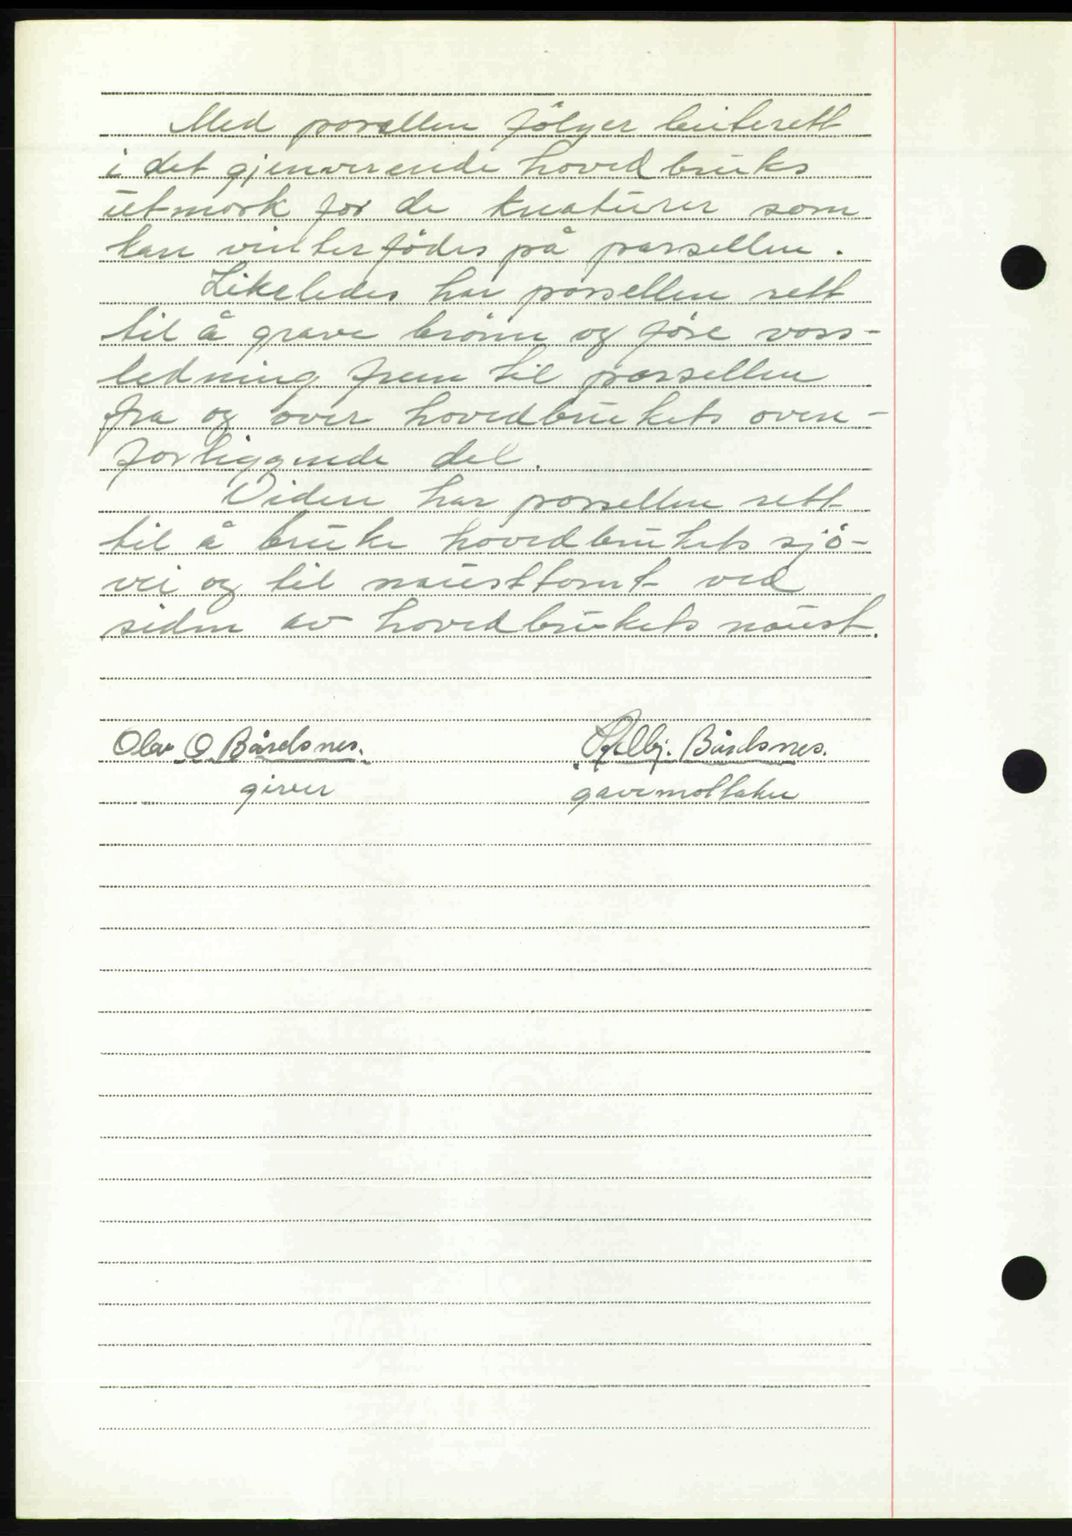 Med parsellen fölger beiterett
i det gjenverende hovedbruks
utmark for de kreaturer som
kan vinterfödes på parsellen.
Likeledes har parsellen rett
til å grave brönn og före vass-
ledning frem til parsellen
fra og over hovedbrukets oven-
forliggende del.
Viden har parsellen rett
til å bruke hovedbrukets sjö-
vei og til nausttomt ved
siden av hovedbrukets naust.
Olav O Bårdsnes. Bårdsnes.
giver gavemottaker